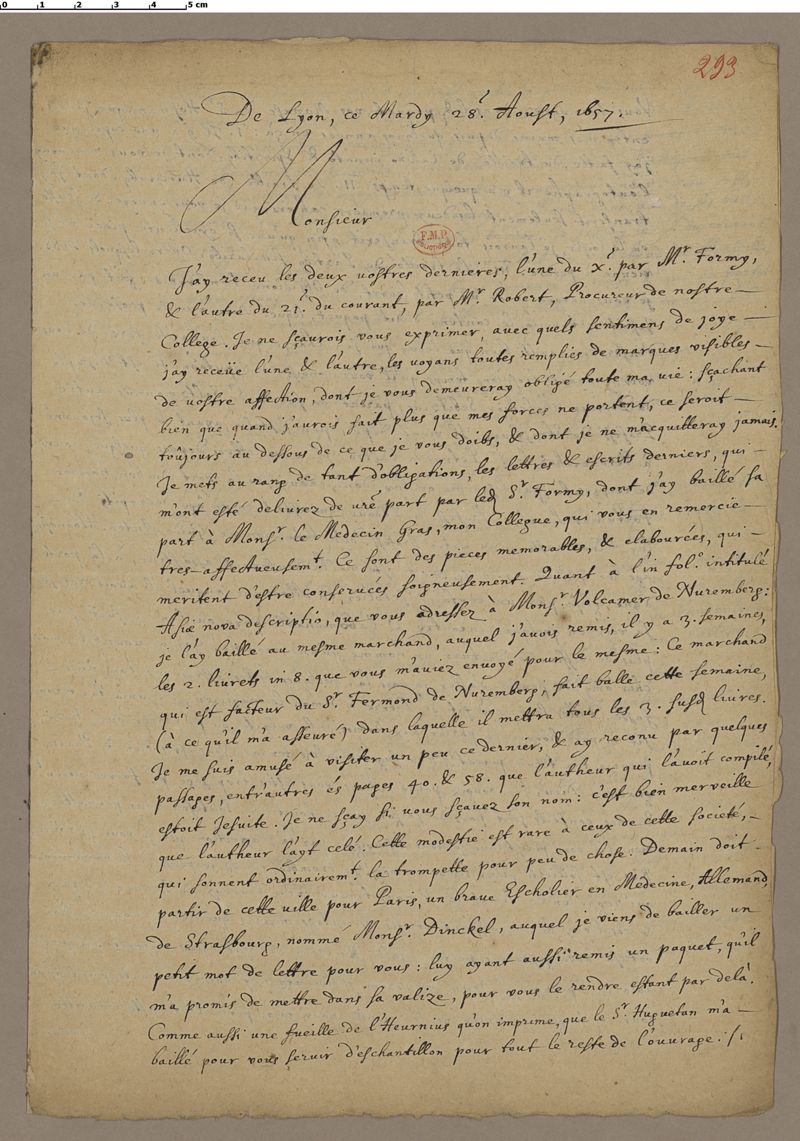 0 1 2 3 4 5 cm
293
De Lyon, ce Mardy 28.e Aoust, 1657.
Monsieur
F.M.P.
J'ay receu les deux vostres dernieres, l'une du X.e par Mr. Formy,
& l'autre du 21.e du courant, par Mr. Robert, Procureur de nostre
College. Je ne sçaurois vous exprimer, avec quels sentimens de joye
j'ay receüe l'une & l'autre, les voyans toutes remplies de marques visibles
de vostre affection, dont je vous demeureray obligé toute ma vie: sçachant
bien que quand j'aurois fait plus que mes forces ne portent, ce seroit
toûjours au dessous de ce que je vous doibs, & dont je ne m'acquilleray jamais.
Je mets au rang de tant d'obligations, les lettres & escrits derniers, qui
m'ont esté delivrez de vre part par led Sr. Formy, dont j'ay baillé sa
part à Monsr. le Medecin Gras, mon Collegue, qui vous en remercie
tres-affectueusemt. Ce sont des pieces memorables, & elabourées, qui
meritent d'estre conservées soigneusement. Quant à l'in folo. intitulé
Asiæ nova descriptio, que vous adressez à Monsr. Volcamer de Nuremberg:
je l'ay baillé au mesme marchand, auquel j'avois remis, il y a 3. semaines,
les 2. livrets in 8. que vous m'aviez envoyé pour le mesme: Ce marchand
qui est facteur du Sr. Fermond de Nuremberg, fait balle cette semaine,
(à ce qu'il m'a asseuré) dans laquelle il mettra tous les 3. susd livres.
Je me suis amusé à visiter un peu ce dernier, & ay reconu par quelques
passages, entr'autres és pages 40. & 58. que l'autheur qui l'avoit compilé,
estoit Jesuite. Je ne sçay si vous sçavez son nom: c'est bien merveille
que l'autheur l'ayt celé. Cette modestie est rare à ceux de cette societé,
qui sonnent ordinairemt. la trompette pour peu de chose. Demain doit
partir de cette ville pour Paris, un brave Escholier en Médecine, Allemand,
de Strasbourg, nommé Monsr. Dinckel, auquel je viens de bailler un
petit mot de lettre pour vous: luy ayant aussi remis un paquet, qu'il
m'a promis de mettre dans sa valize, pour vous le rendre estant par delà.
Comme aussi une fueille de l'Heurnius qu'on imprime, que le Sr. Huguetan m'a
baillé pour vous servir d'eschantillon pour tout le reste de l'ouvrage. /.